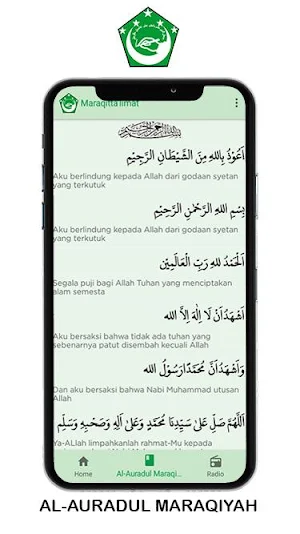 Maraqitta'limat
اَعُوْذُ بِاللهِ مِنَ الشَّيْطَانِ الرَّجِيْمِ
Aku berlindung kepada Allah dari godaan syetan
yang terkutuk
بِسْمِ اللهِ الرَّحْمٰنِ الرَّحِيْمِ
Aku berlindung kepada Allah dari godaan syetan
yang terkutuk
اَلْحَمْدُ للهِ رَبِّ الْعَالَمِيْنَ
Segala puji bagi Allah Tuhan yang menciptakan
alam semesta
اَشْهَدُ اَنْ لَا اِلٰهَ اِلَّا الله
Aku bersaksi bahwa tidak ada tuhan yang
sebenarnya patut disembah kecuali Allah
وَاَشْهَدُ اَنَّ مُحَمَّدًا رَسُوْلُ الله
Dan aku bersaksi bahwa Nabi Muhammad utusan
Allah
اَللّٰهُمَّ صَلِّ عَلَى سَيِّدِنَا مُحَمَّدٍ وَعَلَى اٰلِهِ وَصَحْبِهِ وَسَلِّمْ
Ya-ALlah limpahkanlah rahmat-Mu kepada
Home
Al-Auradul Maraqi...
Radio
AL-AURADUL MARAQIYAH